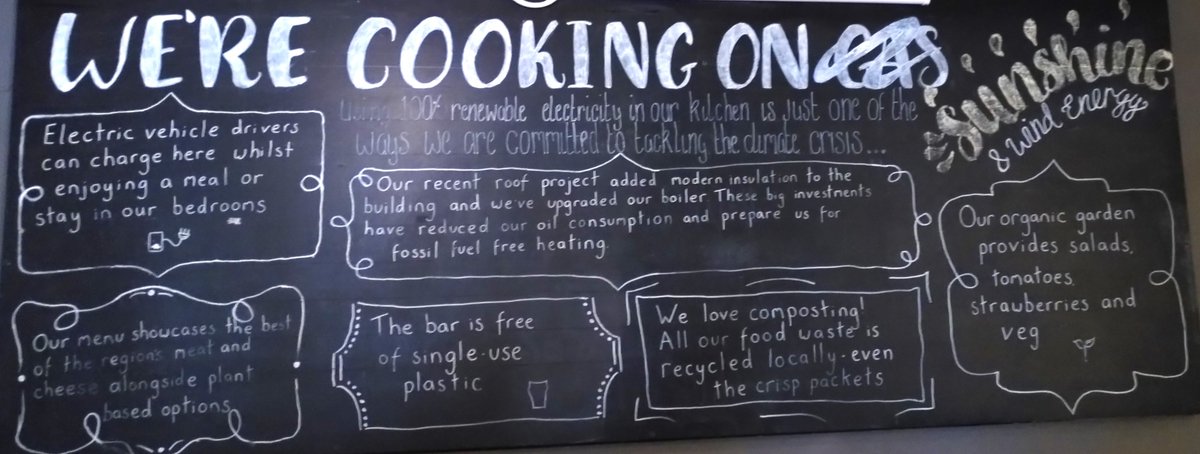 WE'RE COOKING ON GAS
Sunshine
& Wind Energy
Using 100% renewable electricity in our kitchen is just one of the
ways we are committed to tackling the climate crisis...
Electric vehicle drivers
can charge here whilst
enjoying a meal or
stay in our bedrooms
Our recent roof project added modern insulation to the
building and we've upgraded our boiler. These big investments
have reduced our oil consumption and prepare us for
fossil fuel free heating.
Our organic garden
provides salads,
tomatoes,
strawberries and
veg
Our menu showcases the best
of the region's meat and
cheese alongside plant
based options
The bar is free
of single-use
plastic
We love composting!
All our food waste is
recycled locally-even
the crisp packets